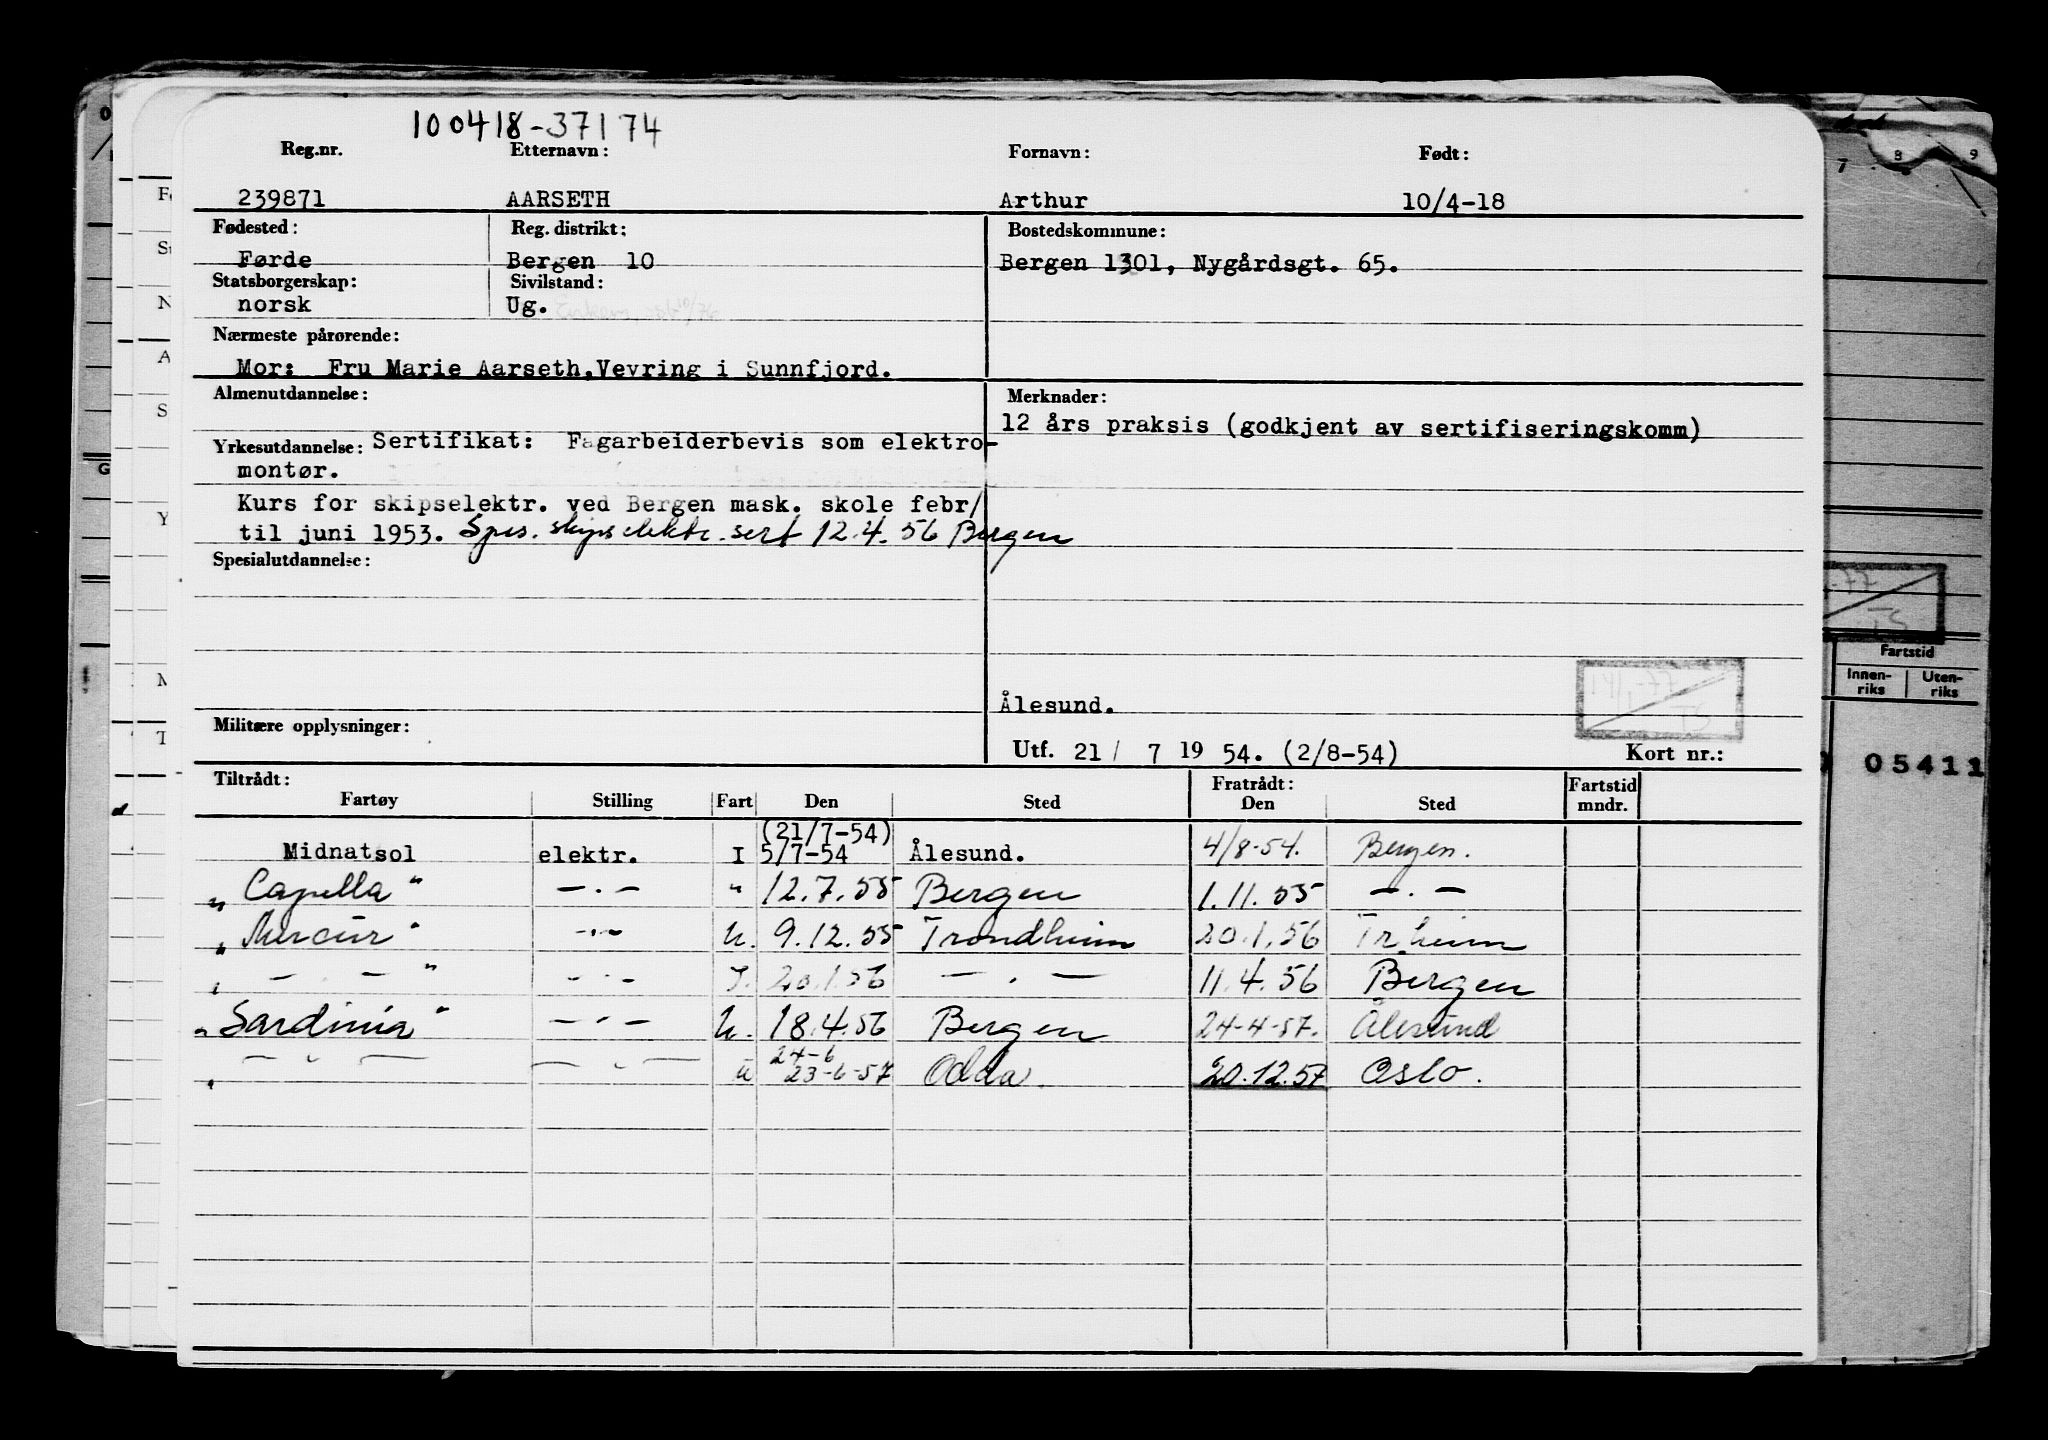 100418-37174
Reg.nr. Etternavn: Fornavn: Født:
239871 AARSETH Arthur 10/4-18
Fødested: Reg. distrikt: Bostedskommune:
Førde Bergen 10 Bergen 1301, Nygårdsgt. 65.
Statsborgerskap: Sivilstand:
norsk Ug.
Nærmeste pårørende:
Mor: Fru Marie Aarseth, Vevring i Sunnfjord.
Almenutdannelse: Merknader:
12 års praksis (godkjent av sertifiseringskomm)
Yrkesutdannelse: Sertifikat: Fagarbeiderbevis som elektro-
montør.
Kurs for skipselektr. ved Bergen mask. skole febr/
til juni 1953. Spes. skipselektr. sert 12.4.56 Bergen
Spesialutdannelse:
Ålesund.
Militære opplysninger:
Utf. 21/ 7 19 54. (2/8-54) Kort nr.:
Tiltrådt: Fratrådt: Fartstid
Fartøy Stilling Fart Den Sted Den Sted mndr.
(21/7-54)
Midnatsol elektr. I 5/7-54 Ålesund. 4/8-54. Bergen.
"Capella" —.— " 12.7.55 Bergen 1.11.55 —.—
"Mercur" —.— U. 9.12.55 Trondheim 20.1.56 Trheim
" —.— " —.— I. 20.1.56 —.— 11.4.56 Bergen
"Sardinia" —.— U. 18.4.56 Bergen 24-4-57. Ålesund
24-6
" —"— —"— U 23-6-57 Odda. 20.12.57 Oslo.
Fartstid
Innen-
riks
Uten-
riks
05411
7 8 9